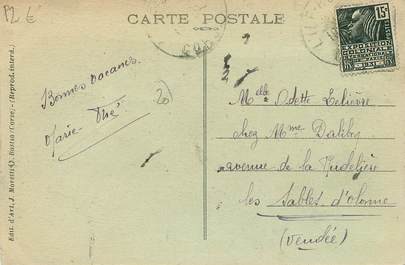 P2 €
CARTE POSTALE
15c
EXPOSITION
COLONIALE
INTERNATIONALE
PARIS
1931
Bonnes vacances
Marie-Thé
20
Melle Odette Lelièvre
chez Mme Dalibs
avenue de la Rudelière
les Sables d'Olonne
(Vendée)
Edit. d'Art, J. Moretti, Bastia (Corse) - (Reprod. interd.)